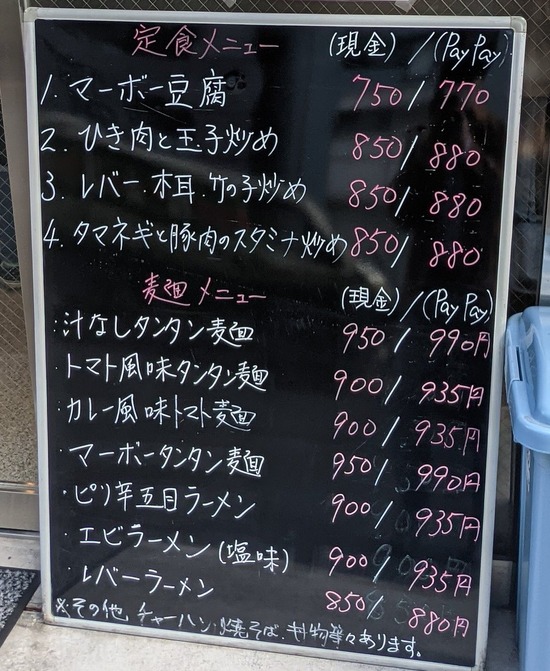 定食メニュー (現金) / (PayPay)
1. マーボー豆腐 750 / 770
2. ひき肉と玉子炒め 850 / 880
3. レバー.木耳.竹の子炒め 850 / 880
4. タマネギと豚肉のスタミナ炒め 850 / 880
麺メニュー (現金) / (PayPay)
・汁なしタンタン麺 950 / 990円
・トマト風味タンタン麺 900 / 935円
・カレー風味トマト麺 900 / 935円
・マーボータンタン麺 950 / 990円
・ピリ辛五目ラーメン 900 / 935円
・エビラーメン(塩味) 900 / 935円
・レバーラーメン 850 / 880円
※その他 チャーハン・焼そば.丼物等々あります。